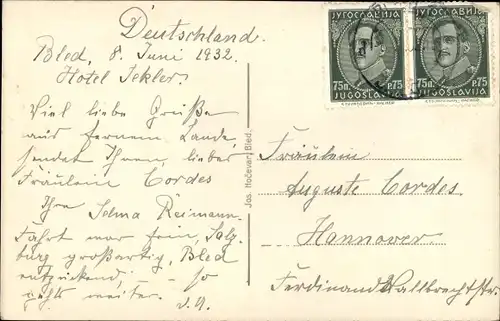 Deutschland.
Bled, 8. Juni 1932.
Hotel Jekler.
Viel liebe Grüße
aus fernem Lande,
sendet Ihnen, lieber
Fräulein Cordes
Ihre Selma Reimann.
Fahrt war fein, Salz-
burg großartig, Bled
entzückend, – so
geht's weiter. –
Jos. Hočevar, Bled.
ЈУГОСЛАВИЈА
75п. P.75
JUGOSLAVIJA
ЈУГОСЛАВИЈА
75п. P.75
JUGOSLAVIJA
Fräulein
Auguste Cordes.
Hannover.
Ferdinand Wallbrechtstr.